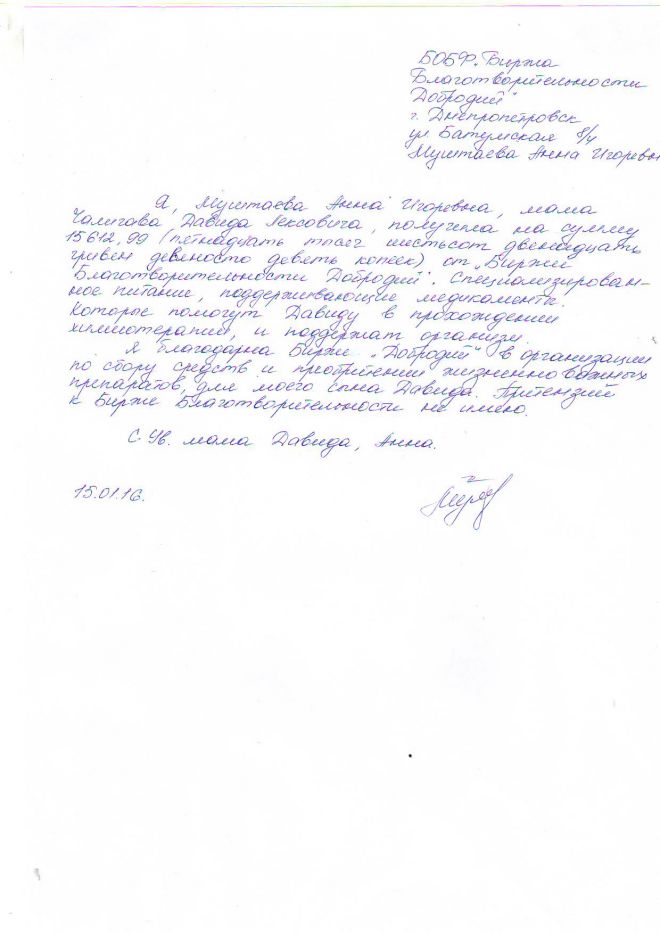 БОБФ. Биржа
Благотворительности
Добродий"
г. Днепропетровск
ул Батумская 8/4
Муштаева Анна Игоревн
Я, Муштаева Анна Игоревна, мама
Чалигава Давида Лексовича, получила на сумму
15612,99 (пятнадцать тысяч шестьсот двенадцать
гривен девяносто девять копеек) от „Биржи
Благотворительности Добродий". Специализирован-
ное питание, поддерживающие медикаменты.
Которые помогут Давиду в прохождении
химиотерапии, и поддержат организм.
Я благодарна Бирже „Добродий" в организации
по сбору средств и преобритении жизненно важных
препаратов, для моего сына Давида. Притензий
к Бирже Благотворительности не имею.
С Ув. мама Давида, Анна.
15.01.16.